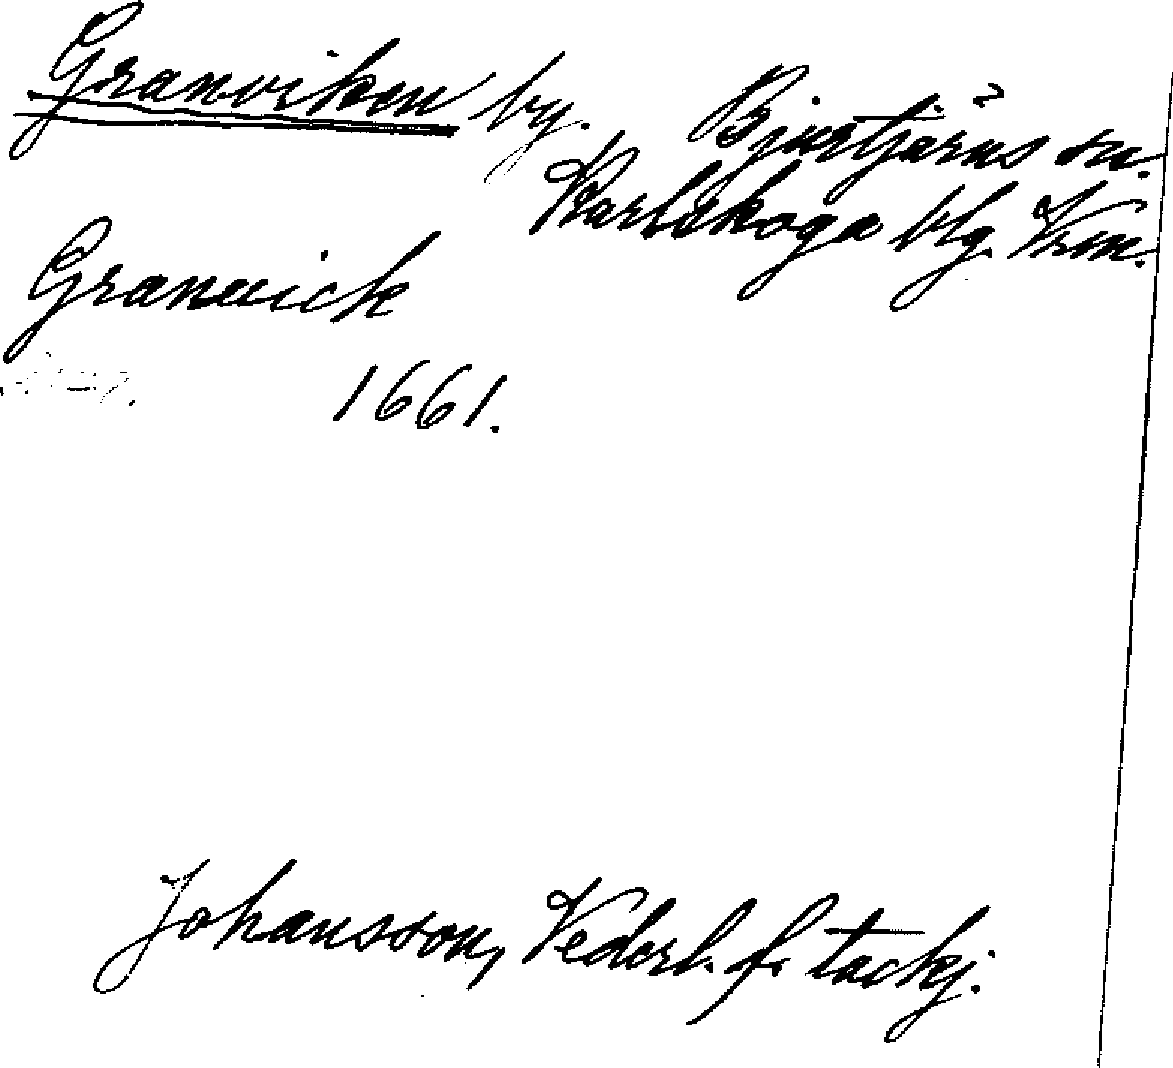 Granviken by.
Bjurtjärns sn.
Karlskoga blg. Vrm.
Granwick
1661.
Johansson, Vederl. f. tackj.